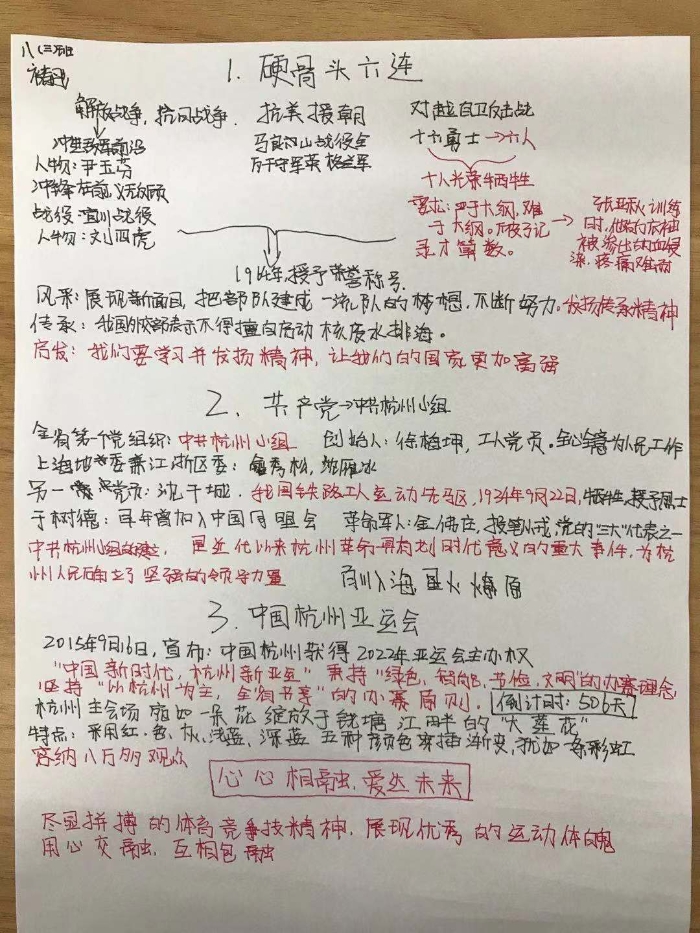 八(三)班
1. 硬骨头六连
解放战争, 抗日战争. 抗美援朝 对越自卫反击战
冲在敌军前沿 马良山战役全 十六勇士→六人
人物:尹玉芬
冲锋在前,义无反顾 十人光荣牺牲
战役:宜川战役 要求:严于大纲,难于大纲。
人物:刘四虎 录才算数。
张 训练时,
被渗出的血浸
染,疼痛难耐
1964年授予荣誉称号.
风采:展现新面目,把部队建成一流队的梦想,不断努力.发扬传承精神
传承:我国外交部表示不得擅自启动核废水排海。
启发:我们要学习并发扬精神,让我们的国家更加富强
2. 共产党→中共杭州小组
全省第一个党组织:中共杭州小组 创始人:徐梅坤,工人党员.全心全意为人民工作
上海地委兼江浙区委:金秀松,沈雁冰
另一 党员:沈干城,我国铁路工人运动先驱,1934年9月22日,牺牲,授予烈士
于树德:早年曾加入中国同盟会 革命军人:金佛庄,投笔从戎,党的"三大"代表之一
中共杭州小组的建立, 是近代以来杭州革命具有划时代意义的重大事件,为杭
州人民确立了坚强的领导力量 百川入海 星火燎原
3. 中国杭州亚运会
2015年9月16日,宣布:中国杭州获得2022年亚运会主办权
"中国新时代,杭州新亚运" 秉持"绿色、智能、节俭、文明"的办赛理念
坚持"以杭州为主,全省共享"的办赛原则. 倒计时:506天
杭州主会场宛如一朵花绽放于钱塘江畔的"大莲花"
特点:采用红、色、灰、浅蓝、深蓝五种颜色穿插渐变,犹如一条彩虹
容纳八万多观众
心心相融,爱达未来
尽显拼搏的体育竞争技精神,展现优秀的运动体魄
用心交融,互相包融